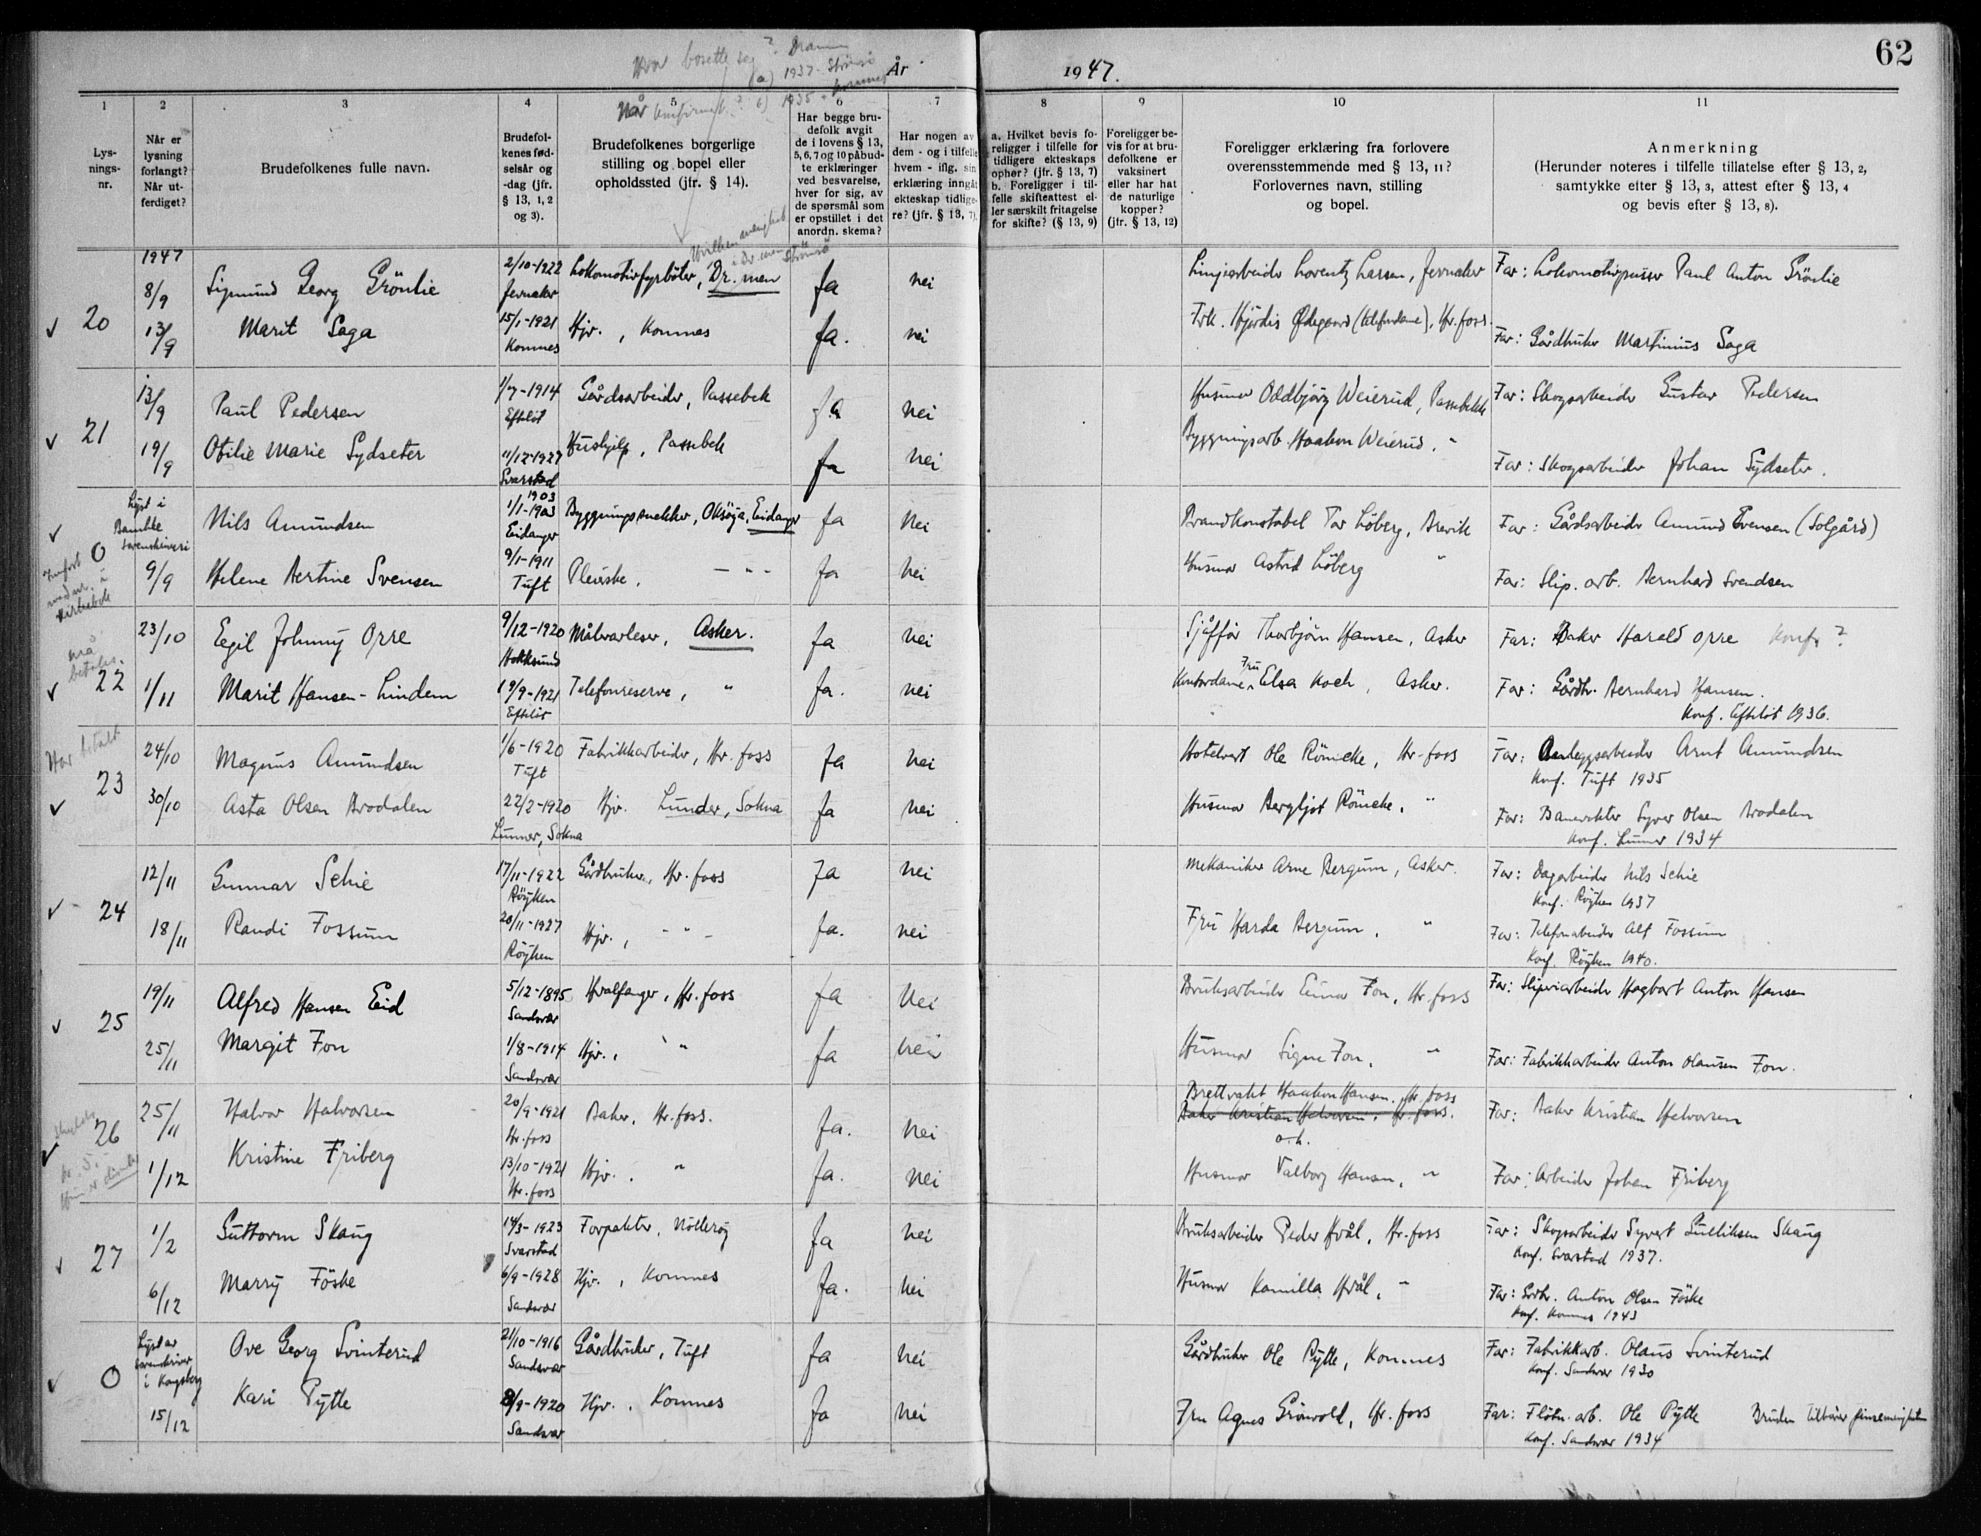 62
Hvor bosette seg? Dramm
a) 1937 - Strömsö
År 1947.
Når konfirmert? b) 1935 - Komnes
1 2 3 4 5 6 7 8 9 10 11
Lys-
nings-
nr.
Når er
lysning
forlangt?
Når ut-
ferdiget?
Brudefolkenes fulle navn.
Brudefol-
kenes fød-
selsår og
-dag (jfr.
§ 13, 1, 2
og 3).
Brudefolkenes borgerlige
stilling og bopel eller
opholdssted (jfr. § 14).
Har begge bru-
defolk avgit
de i lovens § 13,
5, 6, 7 og 10 påbud-
te erklæringer
ved besvarelse,
hver for sig, av
de spørsmål som
er opstillet i det
anordn. skema?
Har nogen av
dem - og i tilfelle
hvem - iflg. sin
erklæring inngått
ekteskap tidlige-
re? (jfr. § 13, 7).
a. Hvilket bevis fo-
religger i tilfelle for
tidligere ekteskaps
ophør? (jfr. § 13, 7)
b. Foreligger i til-
felle skifteattest el-
ler særskilt fritagelse
for skifte? (§ 13, 9)
Foreligger be-
vis for at bru-
defolkene er
vaksinert
eller har hat
de naturlige
kopper?
(jfr. § 13, 12)
Foreligger erklæring fra forlovere
overensstemmende med § 13, 11?
Forlovernes navn, stilling
og bopel.
Anmerkning
(Herunder noteres i tilfelle tillatelse efter § 13, 2,
samtykke efter § 13, 3, attest efter § 13, 4
og bevis efter § 13, 8).
Hvilken menighet
i Dr.men Strömsö
1947
20 8/9 Sigmund Georg Grönlie 2/10-1922 Jevnaker Lokomotivfyrböter, Dr.men Ja nei Linjearbeider Lorentz Larsen, Jevnaker Far: Lokomotivpusser Paul Anton Grönlie
13/9 Marit Saga 15/1-1921 Komnes Hjv., Komnes Ja. nei Frk. Hjördis Ødegaard (telefondame), Hv.foss. Far: Gårdbruker Martinius Saga
21 13/9 Paul Pedersen 1/7-1914 Efteløt Gårdsarbeider, Passebek Ja nei Husmor Oddbjörg Weierud, Passebekk Far: Skogsarbeider Gustav Pedersen
19/9 Otilie Marie Sydseter 11/12-1927 Svarstad Hushjelp, Passebek Ja nei Byggningsarb. Haakon Weierud. " Far: Skogsarbeider Johan Sydseter.
Lyst i
Bamble
sorenskriveri
O Nils Amundsen 1903 1/1-1903 Eidanger Byggningssnekker, Oksöya, Eidanger Ja Nei Brandkonstabel Tor Löberg, Brevik Far: Gårdsarbeider Amund Evensen (Solgård)
9/9 Helene Bertine Svensen 9/1-1911 Tuft Pleierske. - " - Ja Nei Husmor Astrid Löberg " Far: Slip. arb. Bernhard Svendsen
må
betales.
22 23/10 Egil Johnny Opre 9/12-1920 Hokksund Målavleser, Asker. Ja nei Sjåfför Thorbjörn Hansen, Asker Far: Baker Harald Opre Konf. ?
1/11 Marit Hansen-Lindem 19/9-1921 Efteløt Telefonreserve, " Ja. nei Kontordame, Fru Elsa Koch, Asker. Far: Gårdbr. Bernhard Hansen.
Konf. Efteløt 1936.
Har betalt
23 24/10 Magnus Amundsen 1/6-1920 Tuft Fabrikkarbeider, Hv.foss Ja nei Hotelvert Ole Römcke, Hv-foss Far: Anleggsarbeider Arnt Amundsen
Konf. Tuft 1935
30/10 Asta Olsen Brodalen 22/2-1920 Lunner, Sokna Hjv. Lunder, Sokna Ja nei Husmor Bergljot Römcke. " Far: Banevokter Syver Olsen Brodalen
Konf. Lunner 1934
24 12/11 Gunnar Schie 17/11-1922 Röyken Gårdbruker, Hv.foss Ja nei Mekaniker Arne Bergum, Asker. Far: Dagarbeider Nils Schie
Konf. Röyken 1937
18/11 Randi Fossum 20/11-1927 Röyken Hjv., - " - Ja. nei Fru Harda Bergum. " Far: Telefonarbeider Alf Fossum
Konf. Röyken 1940.
25 19/11 Alfred Hansen Eid 5/12-1895 Sandsvær Hvalfanger, Hv.foss Ja Nei Bruksarbeider Einar Fon, Hv.foss Far: Sliperiarbeider Hagbart Anton Hansen
25/11 Margit Fon 1/8-1914 Sandsvær Hjv., " Ja nei Husmor Signe Fon. " Far: Fabrikkarbeider Anton Olausen Fon.
26 25/11 Halvor Halvorsen 20/9-1921 Hv.foss Baker, Hv.foss. Ja. nei Brettvakt Haakon Hansen, Hv.foss
Baker Kristian Halvorsen, Hv.foss. Far: Baker Kristian Halvorsen
1/12 Kristine Friberg 13/10-1921 Hv.foss Hjv. " Ja. nei Husmor Valborg Hansen, " Far: Arbeider Johan Friberg
27 1/2 Guttorm Skaug 14/3-1923 Svarstad Forpakter, Nötteröy Ja nei Bruksarbeider Peder Hvål, Hv.foss Far: Skogsarbeider Syvert Gulliksen Skaug
Konf. Svarstad 1937.
6/12 Marry Föske 6/9-1928 Sandsvær Hjv., Komnes Ja. nei Husmor Kamilla Hvål, " Far: Grdbr. Anton Olsen Föske
Konf. Komnes 1943
Lyst av
sorenskriver
i Kongsberg
O Ove Georg Svinterud 21/10-1916 Sandsvær Gårdbruker, Tuft Ja nei Gårdbruker Ole Pytte, Komnes Far: Fabrikkarb. Olaus Svinterud
Konf. Sandsvær 1930
15/12 Kari Pytte 8/9-1920 Sandsvær Hjv., Komnes Ja nei Fru Agnes Grönvold, Hv.foss Far: Flötn.arb. Ole Pytte Bruden tilhører pinsemenigheten
Konf. Sandsvær 1934